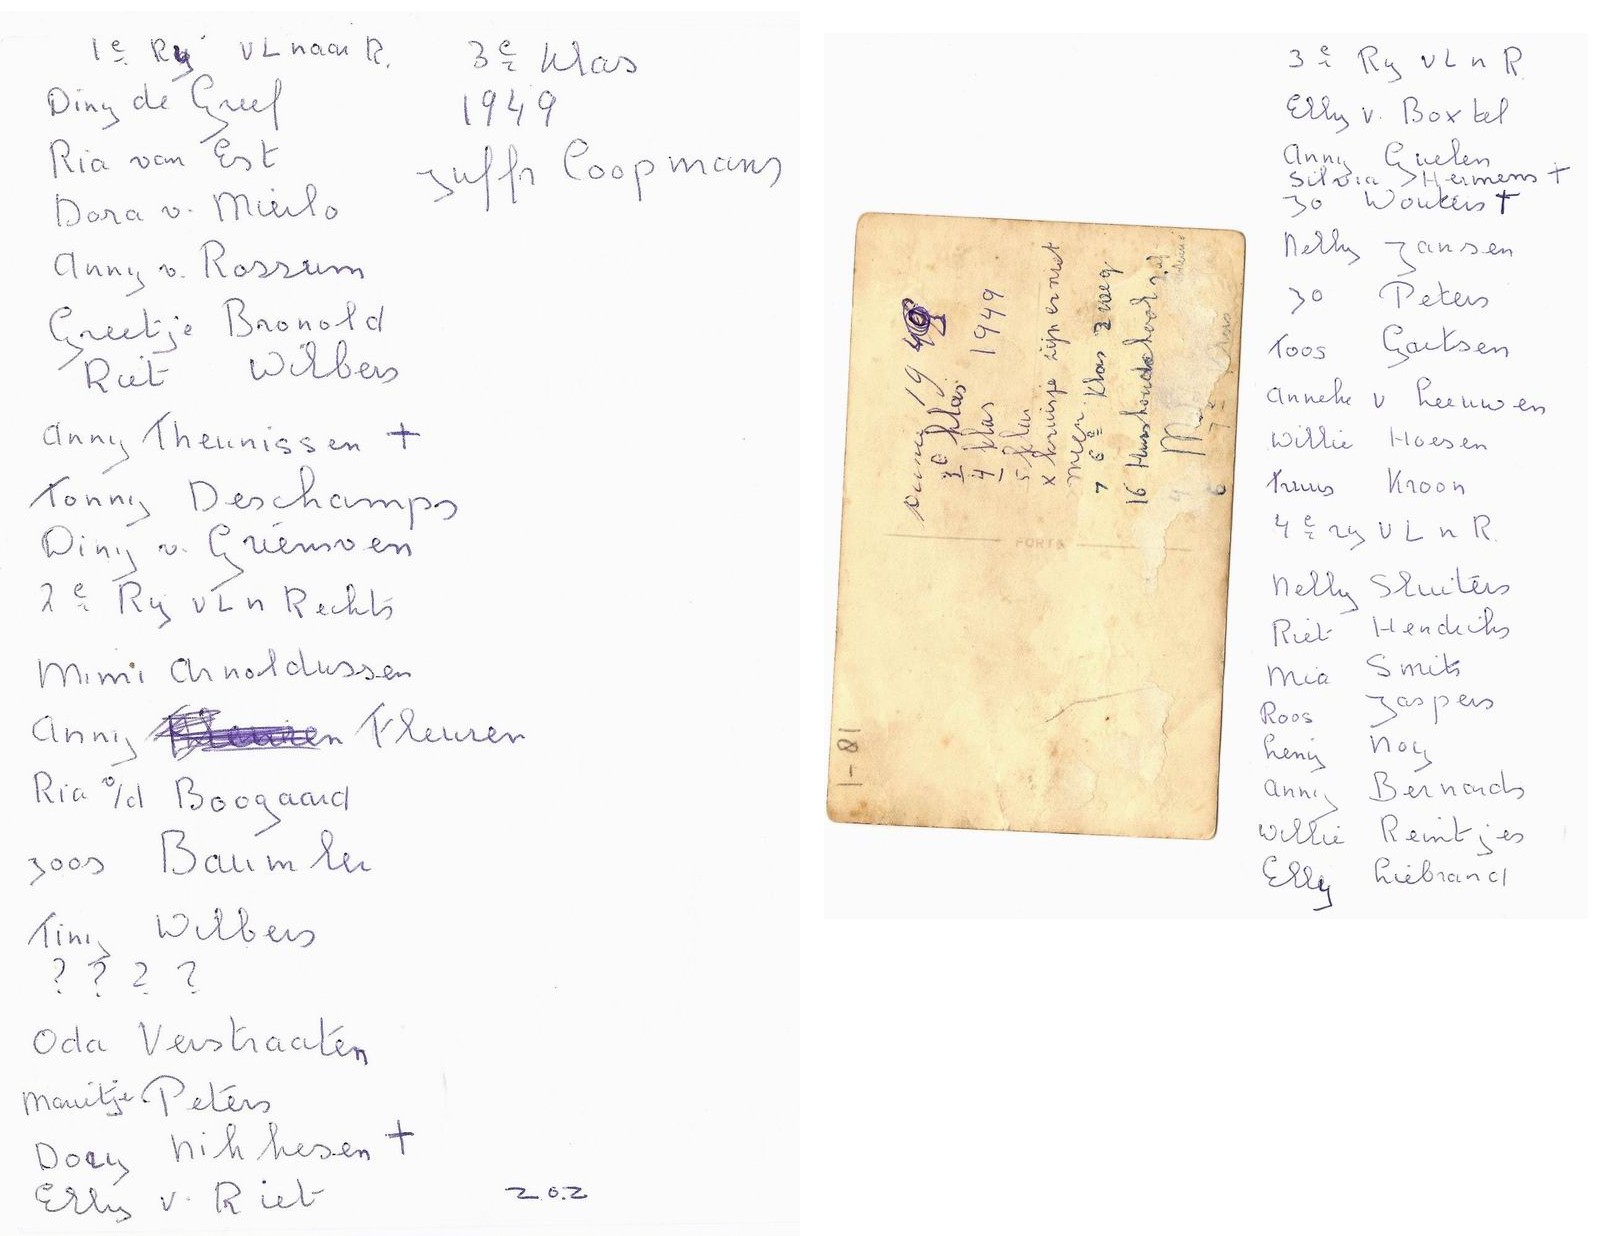 1e Ry vL naar R. 3e Klas
Diny de Greef 1949
Ria van Est Juffr Coopmans
Dora v. Mierlo
Anny v. Rossum
Greetje Bronold
Riet Wilbers
Anny Theunissen +
Tonny Deschamps
Diny v. Griensven
2e Ry vL n Rechts
Mimi Arnoldussen
Anny Fleuren
Ria v/d Boogaard
Joos Baumler
Tiny Wilbers
? ? ? ?
Oda Verstraaten
Marietje Peters
Dory Nikkesen +
Elly v. Riet
z.o.z
19
3e klas
4 klas 1949
5 klas
x kruisje zijn er niet
meer
7 6e Klas 2 weg
16 Huishoudschool
PORTR
1-81
3e Ry vL n R.
Elly v. Boxtel
Anny Guelen
Silvia Hermens +
Jo Wouters +
Nelly Jansen
Jo Peters
Toos Gertsen
Anneke v Leeuwen
Willie Hoesen
Truus Kroon
4e ry vL n R.
Nelly Sluiters
Riet Hendriks
Mia Smits
Roos Jaspers
Leny Noy
Anny Bernards
Willie Reintjes
Elly Liebrand